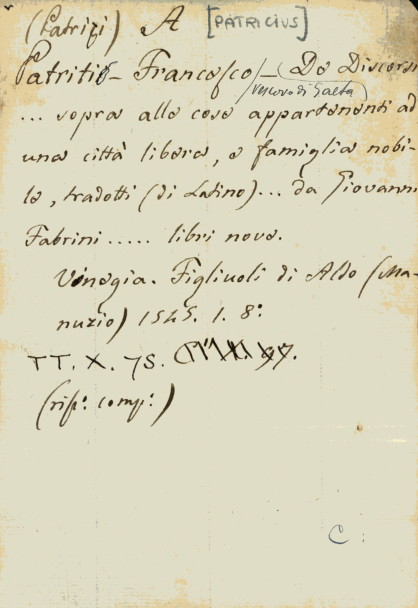 (Patrizi) A [PATRICIUS]
Patritio - Francesco - De Discorsi
(Vescovo di Gaeta)
... sopra alle cose appartenenti ad
una città libera, e famiglia nobi-
le, tradotti (di Latino)... da Giovanni
Fabrini ..... libri nove.
Vinegia. Figliuoli di Aldo (Ma-
nuzio) 1545. 1. 8°:
TT. X. 75.
(risp: comp:)
C: